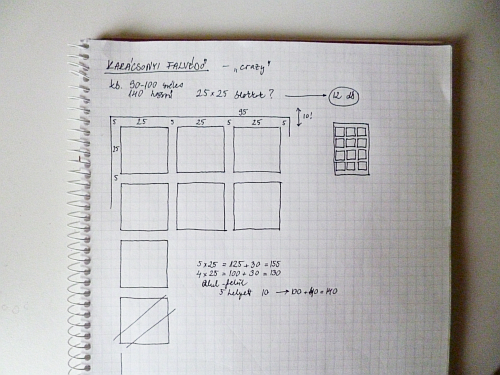 KARÁCSONYI FALVÉDŐ — „crazy"
kb. 90-100 széles
140 hosszú 25×25 blokkok? → 12 db
95
5 25 5 25 5 25 5 10!
25
5
5×25 = 125 + 30 = 155
4×25 = 100 + 30 = 130
alul-felül
5 helyett 10 → 100 + 40 = 140